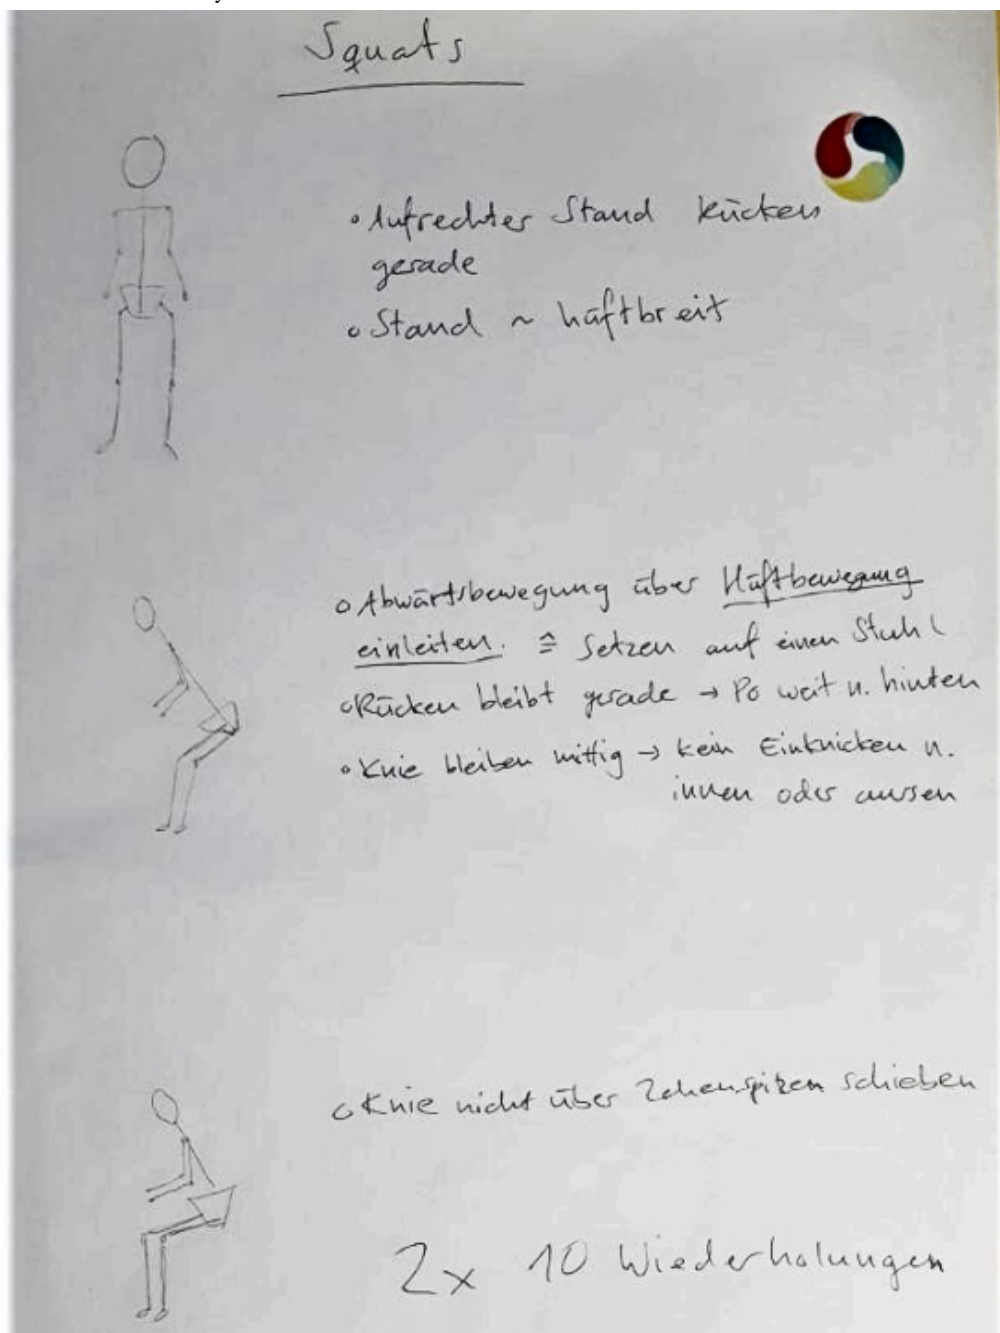 Squats
• Aufrechter Stand Rücken
gerade
• Stand ~ hüftbreit
• Abwärtsbewegung über Hüftbewegung
einleiten. ≙ Setzen auf einen Stuhl
• Rücken bleibt gerade → Po weit n. hinten
• Knie bleiben mittig → kein Einknicken n.
innen oder aussen
• Knie nicht über Zehenspizen schieben
2x 10 Wiederholungen